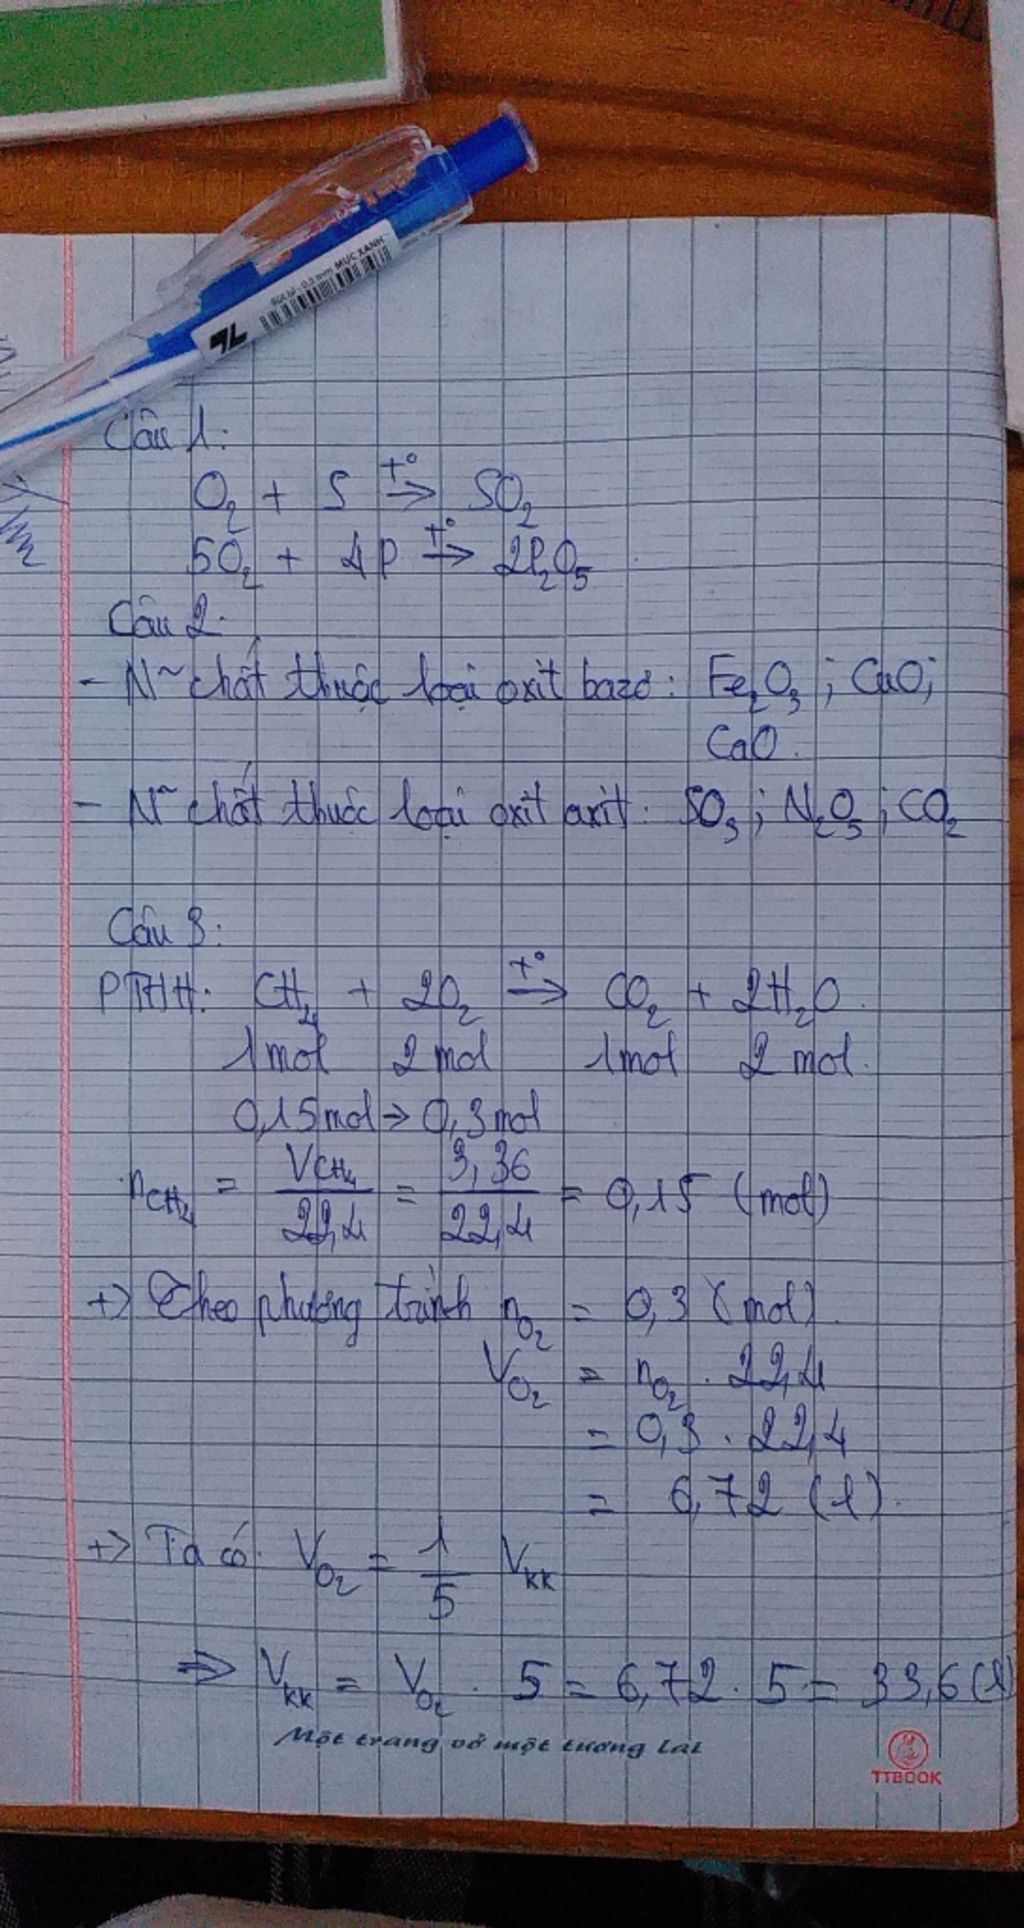 Bút bi - 0.5 mm MỰC XANH
TL
Câu 1:
O₂ + S t°→ SO₂
5O₂ + 4P t°→ 2P₂O₅
Câu 2:
- N~ chất thuộc loại oxit bazơ: Fe₂O₃; CuO;
CaO.
- N~ chất thuộc loại oxit axit: SO₃; N₂O₅; CO₂
Câu 3:
PTHH: CH₄ + 2O₂ t°→ CO₂ + 2H₂O.
1mol 2 mol 1mol 2 mol.
0,15mol → 0,3mol
nCH₄ = VCH₄/22,4 = 3,36/22,4 = 0,15 (mol)
+> Theo phương trình nO₂ = 0,3 (mol).
VO₂ = nO₂ . 22,4
= 0,3 . 22,4
= 6,72 (l).
+> Ta có. VO₂ = 1/5 Vkk
⇒ Vkk = VO₂ . 5 = 6,72 . 5 = 33,6 (l)
Một trang vở một tương lai
TTBOOK